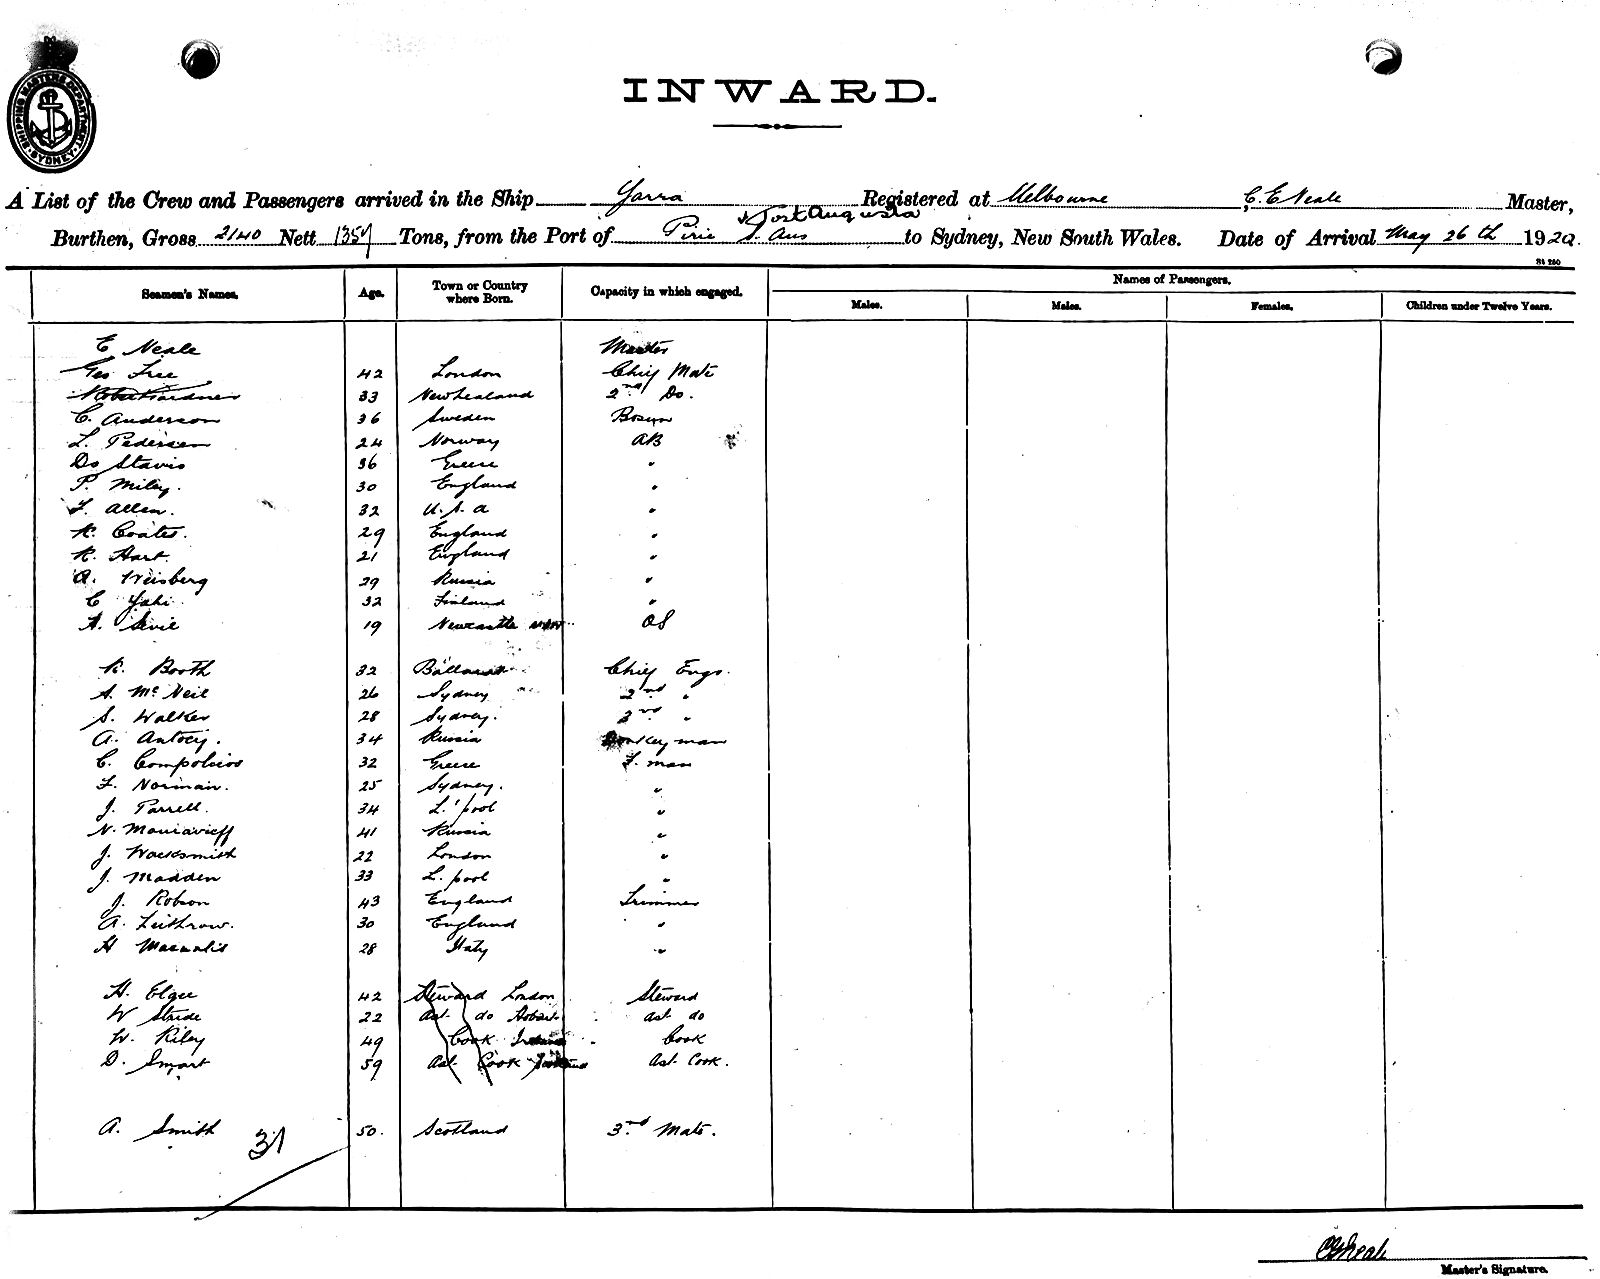 SHIPPING MASTERS DEPARTMENT SYDNEY
INWARD.
A List of the Crew and Passengers arrived in the Ship Yarra Registered at Melbourne C. E. Neale Master,
& Port Augusta
Burthen, Gross 2140 Nett 1357 Tons, from the Port of Pirie S. Aus to Sydney, New South Wales. Date of Arrival May 26th 1920.
Seamen's Names. Age. Town or Country where Born. Capacity in which engaged. Names of Passengers.
Males. Males. Females. Children under Twelve Years.
E Neale Master
Geo Free 42 London Chief Mate
Gardner 33 New Zealand 2nd Do.
C. Anderson 36 Sweden Bosun
L. Pedersen 24 Norway AB
Do Stavis 36 Greese "
P. Miley. 30 England "
F. Allen. 32 U.S.A "
R. Coates. 29 England "
R. Hart. 21 England "
A. Weisberg 29 Russia "
C Yaki 32 Finland "
A. Sevie 19 Newcastle NSW OS
R. Booth 32 Ballarat Chief Engr.
A. McNeil 26 Sydney 2nd "
S. Walker 28 Sydney. 3rd "
A. Antocij. 34 Russia Donkeyman
C. Compolsios 32 Greese F. man
F. Norman. 25 Sydney. "
J. Parrell. 34 L'pool "
N. Mouravieff 41 Russia "
J. Wacksmith 22 London "
J. Madden 33 L. pool "
J. Robson 43 England Trimmer
A. Leithrow. 30 England "
H 28 Italy "
H. Elgee 42 Steward London Steward
W Stride 22 Ast do Hobart Ast do
W. Riley 49 Cook Cook
D. Smart 59 Ast. Cook Ast Cook.
A. Smith 50. Scotland 3rd Mate.
31
C E Neale
Master's Signature.